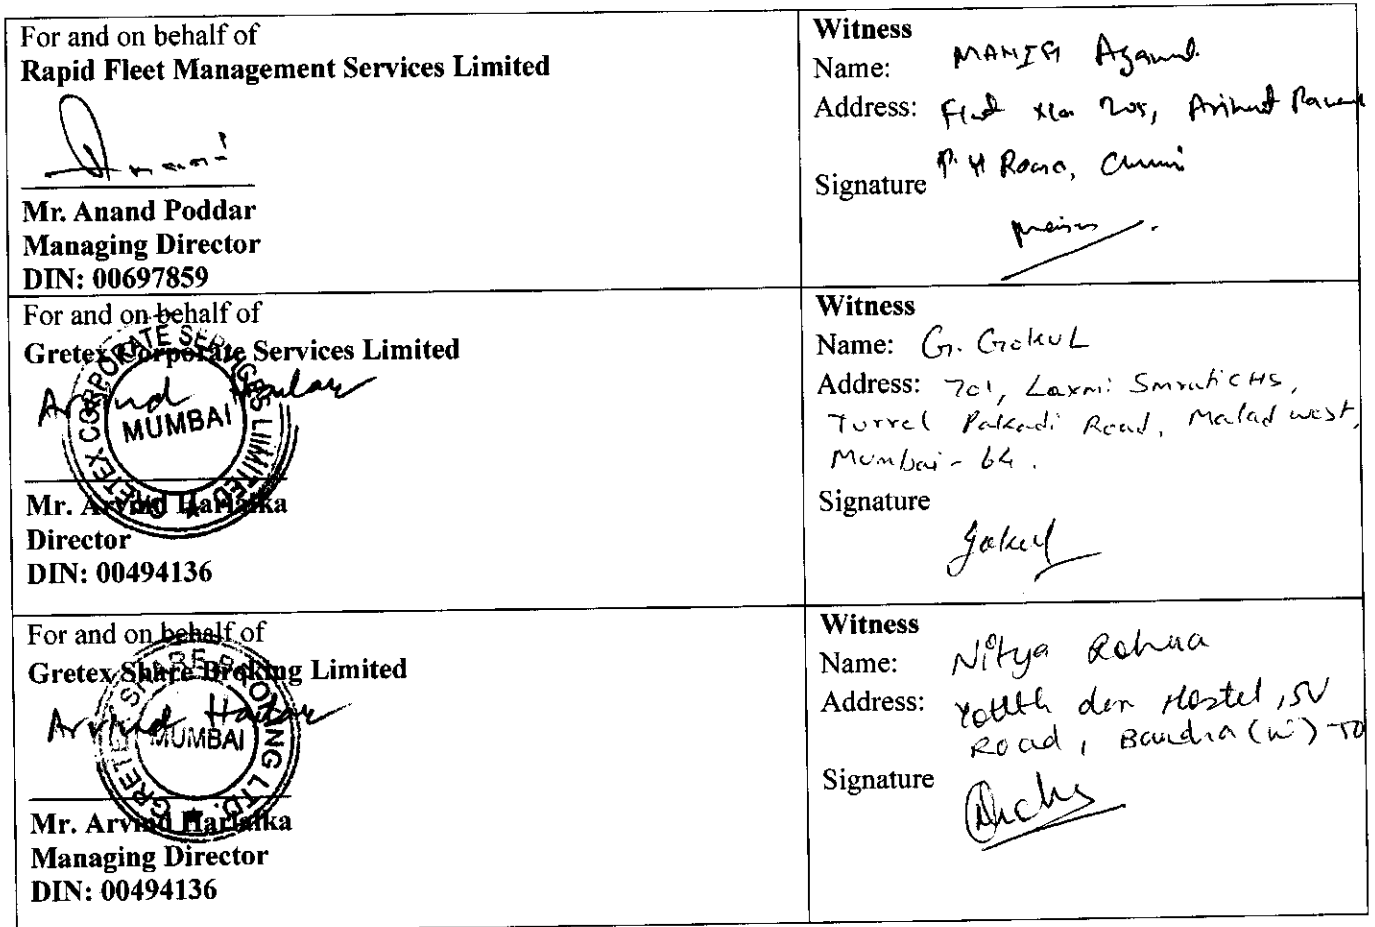 For and on behalf of
Rapid Fleet Management Services Limited
Mr. Anand Poddar
Managing Director
DIN: 00697859
Witness
Name: MANISH Agarwal
Address: Flat
P. H Road,
Signature
For and on behalf of
Gretex Corporate Services Limited
Arvind Harlalka
GRETEX CORPORATE SERVICES LIMITED
MUMBAI
Mr. Arvind Harlalka
Director
DIN: 00494136
Witness
Name: G. Gokul
Address: 701, Laxmi Smruti CHS,
Road, Malad west,
Mumbai - 64.
Signature
Gokul
For and on behalf of
Gretex Share Broking Limited
Arvind Harlalka
GRETEX SHARE BROKING LTD.
MUMBAI
Mr. Arvind Harlalka
Managing Director
DIN: 00494136
Witness
Name: Nitya
Address: Youth den Hostel, SV
Road, Bandra (W)
Signature